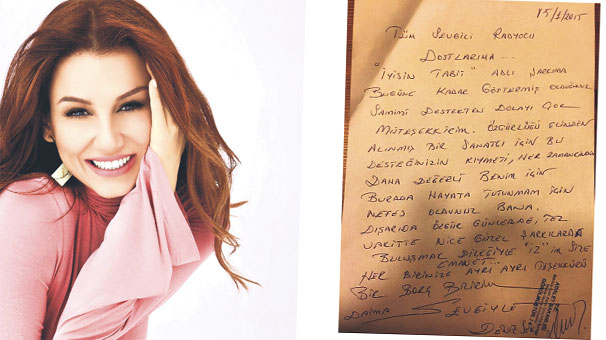 15/1/2015
TÜM SEVGİLİ RADYOCU
DOSTLARIMA...
"İYİSİN TABİİ" ADLI ŞARKIMA
BUGÜNE KADAR GÖSTERMİŞ OLDUĞUNUZ
SAMİMİ DESTEKTEN DOLAYI ÇOK
MÜTEŞEKKİRİM. ÖZGÜRLÜĞÜ ELİNDEN
ALINMIŞ BİR SANATÇI İÇİN BU
DESTEĞİNİZİN KIYMETİ, HER ZAMANKİNDEN
DAHA DEĞERLİ BENİM İÇİN
BURADA HAYATA TUTUNMAM İÇİN
NEFES OLDUNUZ BANA.
DIŞARIDA ÖZGÜR GÜNLERDE, TEZ
VAKİTTE NİCE GÜZEL ŞARKILARDA
BULUŞMAK DİLEĞİYLE "İZ"İM SİZE
EMANET...
HER BİRİNİZE AYRI AYRI TEŞEKKÜRÜ
BİR BORÇ BİLİRİM
DAİMA SEVGİYLE
DENİZ